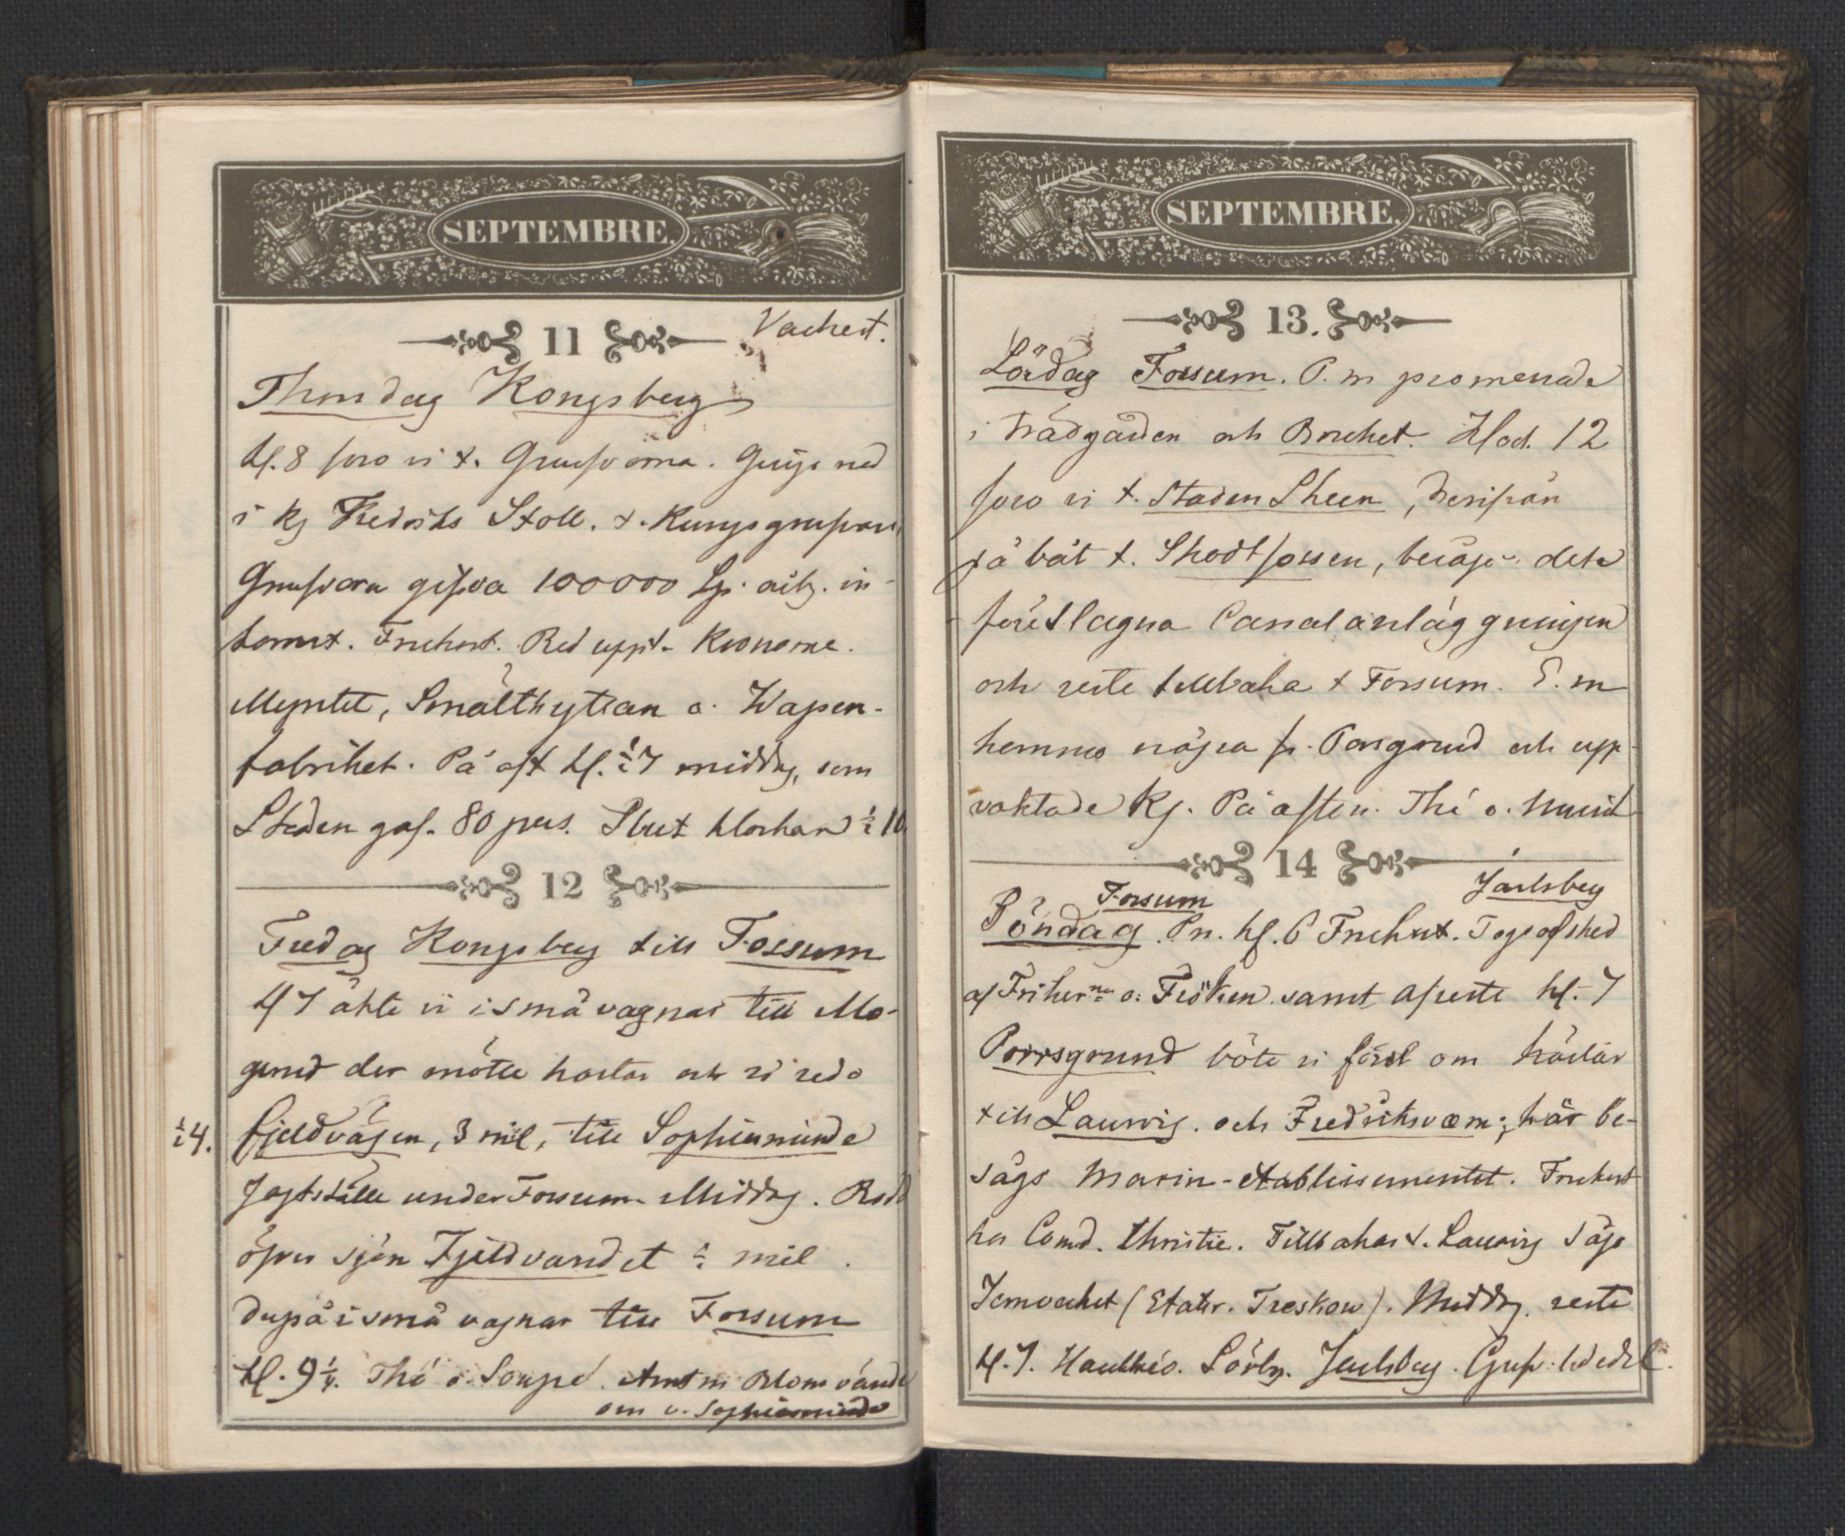 SEPTEMBRE.
11 Vackert.
Thorsdag Kongsberg
kl. 8 foro vi t. Grufvorna. Gingo ned
i Kg Fredriks Stoll. t. Kungsgrufvan,
Grufvorna gifva 100000 Sp. årlig. in-
komst. Frukost. Red uppt. Kronorne.
Myntet, Smälthyttan o. Wapen-
fabriket. På aft kl. ½7 middag, som
Staden gaf. 80 pers. Slut klockan ½10
12
Fredag Kongsberg till Fossum
kl 7 åkte vi i små vagnar till Mo-
grund der mötte hästar och vi redo
½4. fjeldvägen, 3 mil, till Sophienminde
Jagtställe under Fossum. Middag. Rodd
öfver sjön Fjeldvandet ½ mil.
derpå i små vagnar till Fossum
kl. 9¼. Thé o Soupé. Amtm Blom vände
om v. Sophienminde
SEPTEMBRE.
13.
Lördag Fossum. F. m promenade
i trädgården och Bruket. Klock. 12
foro vi t. staden Skeen, derifrån
på båt t. Skodtfossen, besågo dete
föreslagna Canalanläggningen
och reste tillbaka t Fossum. E. m
kommo några fr. Porsgrund och upp-
vaktade Kg. På aften. Thé o. musik
14 Jarlsberg
Fossum
Söndag. Fm. kl. 6 Frukost. Togo afsked
af Friherrne o. Fröken samt afreste kl. 7
Porrsgrund böte vi först om hästar
till Laurvig. och Fredriksværn; här be-
sågs Marin-etablissementet. Frukost
hos Comd. Christie. Tillbakas t. Laurvig sågo
Jernverket (Etatsr. Treskow). Middag. reste
kl. 7. Jarlsberg. Gref